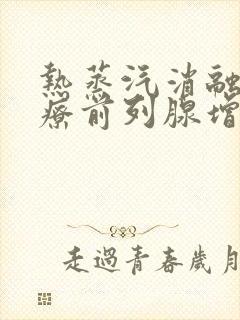 热蒸汽消融
疗前列腺增
走過青春歲月